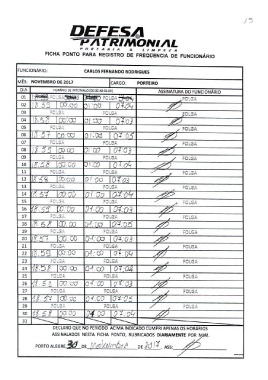 DEFESA
PATRIMONIAL
PORTARIA & LIMPEZA
FICHA PONTO PARA REGISTRO DE FREQUENCIA DE FUNCIONÁRIO
FUNCIONÁRIO: CARLOS FERNANDO RODRIGUES
MÊS: NOVEMBRO DE 2017 CARGO: PORTEIRO
DIA ASSINATURA DO FUNCIONÁRIO
01 FOLGA FOLGA
02 18:55 00:00 01:00 07:04
03 FOLGA FOLGA FOLGA
04 00:00 01:00 07:03
05 FOLGA FOLGA FOLGA
06 18:57 00:00 01:00 07:05
07 FOLGA FOLGA FOLGA
08 18:55 00:00 01:00 07:03
09 FOLGA FOLGA FOLGA
10 00:00 01:00 07:03
11 FOLGA FOLGA FOLGA
12 00:00 01:00 07:03
13 FOLGA FOLGA FOLGA
14 18:57 00:00 01:00 07:04
15 FOLGA FOLGA FOLGA
16 00:00 01:00 07:04
17 FOLGA FOLGA FOLGA
18 18:58 00:00 01:00 07:05
19 FOLGA FOLGA FOLGA
20 18:57 00:00 01:00 07:05
21 FOLGA FOLGA FOLGA
22 18:55 00:00 01:00
23 FOLGA FOLGA FOLGA
24 18:58 00:00 01:00 07:04
25 FOLGA FOLGA FOLGA
26 00:00 01:00 07:03
27 FOLGA FOLGA FOLGA
28 18:57 00:00 01:00 07:05
29 FOLGA FOLGA FOLGA
30 18:58 00:00 07:04
31
DECLARO QUE NO PERIODO ACIMA INDICADO CUMPRI APENAS OS HORARIOS
ASSINALADOS NESTA FICHA PONTO, RUBRICADOS DIARIAMENTE POR MIM.
PORTO ALEGRE 30 de novembro de 2017 ASS: